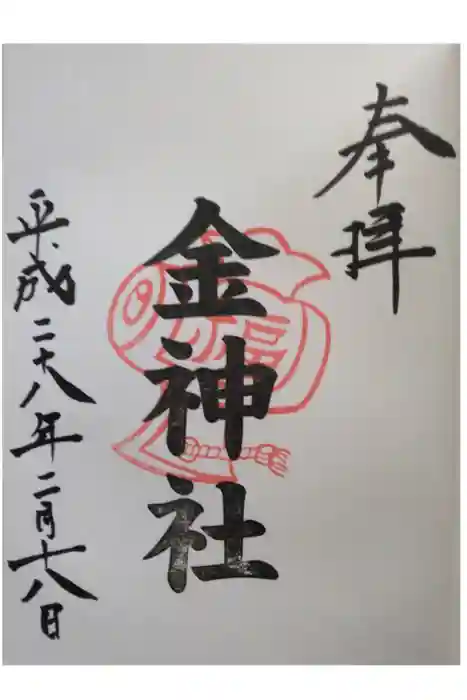 奉拝
金神社
平成二十八年二月十八日